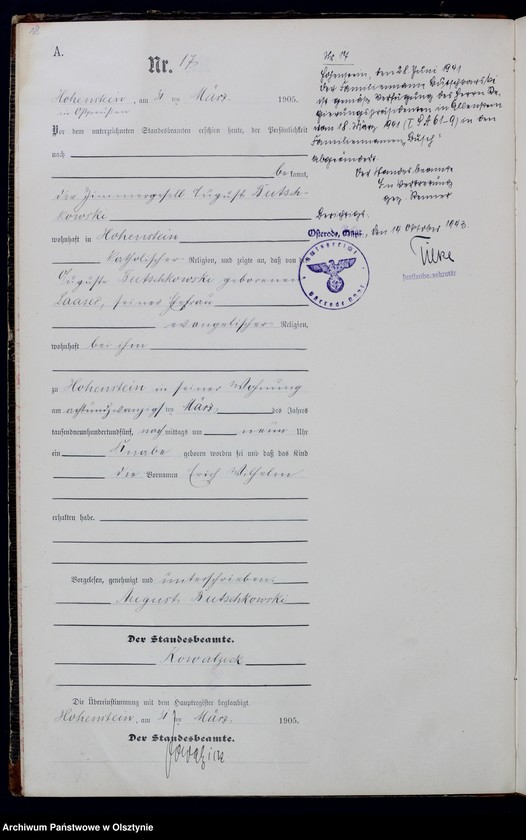 A.
Nr. 17
Hohenstein, am März 1905.
in Ostpreußen
Vor dem unterzeichneten Standesbeamten erschien heute, der Persönlichkeit
nach
bekannt,
der Zimmergesell August Butsch-
kowski
wohnhaft in Hohenstein
katholischer Religion, und zeigte an, daß von
Auguste Butschkowski geborenen
seiner Ehefrau
evangelischer Religion,
wohnhaft bei ihm
zu Hohenstein in seiner Wohnung
am März des Jahres
tausendneunhundertundfünf, nachmittags um neun Uhr
ein Knabe geboren worden sei und daß das Kind
die Vornamen Erich Wilhelm
erhalten habe.
Vorgelesen, genehmigt und unterschrieben.
August Butschkowski
Der Standesbeamte.
Kowalzick
Die Übereinstimmung mit dem Hauptregister beglaubigt.
Hohenstein, am März 1905.
Der Standesbeamte.
Nr. 17
Hohenstein, den 28. Juni 1941
Der Familienname Butschkowski
ist gemäß Verfügung des Herrn Re-
gierungspräsidenten in Allenstein
vom 18. März 1941 in den
Familiennamen „Busch"
abgeändert.
Der Standesbeamte
In Vertretung
gez.
Osterode, Ostpr., den 14 Oktober 1943.
Archiwum Państwowe w Olsztynie